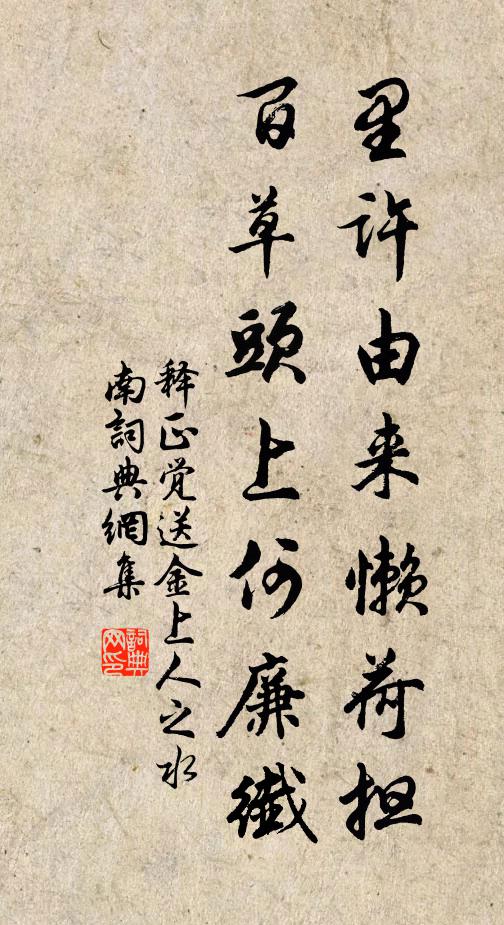 里许由来懒荷担
百草頭上何廉纖
释正觉送金上人之水
南詞典網集
詞典网印